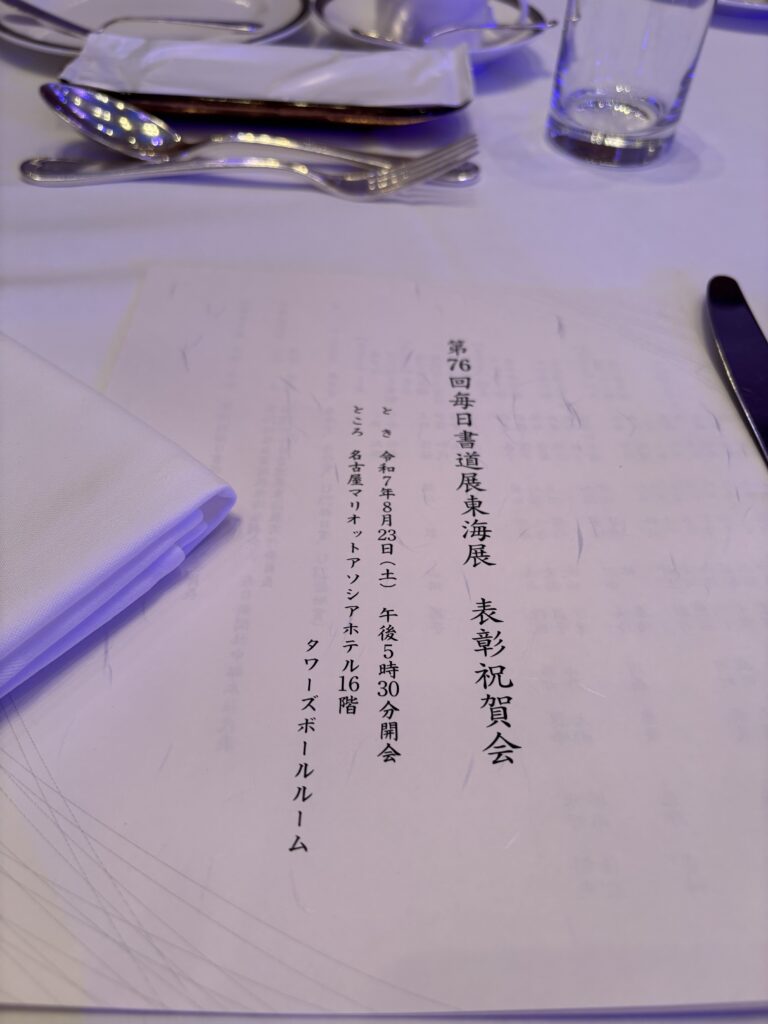 第76回毎日書道展東海展　表彰祝賀会
とき　令和7年8月23日（土）　午後5時30分開会
ところ　名古屋マリオットアソシアホテル16階
タワーズボールルーム